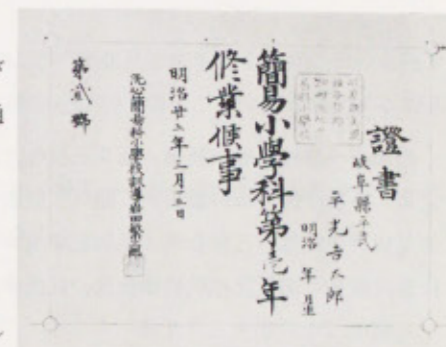 證書
岐阜縣平民
平光吉太郎
明治 年 月生
簡易小學科第壱年
修業候事
明治廿三年三月三日
洗心簡易科小學校訓導岩田
第貳號